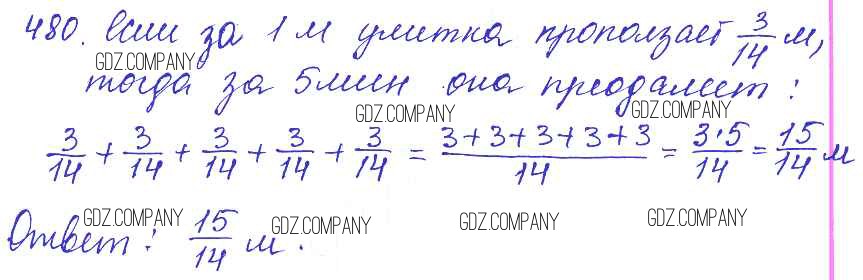 480. Если за 1 м улитка проползает 3/14 м,
тогда за 5 мин она преодолеет:
3/14 + 3/14 + 3/14 + 3/14 + 3/14 = (3+3+3+3+3)/14 = 3·5/14 = 15/14 м
Ответ: 15/14 м.
GDZ.COMPANY
GDZ.COMPANY
GDZ.COMPANY
GDZ.COMPANY
GDZ.COMPANY
GDZ.COMPANY
GDZ.COMPANY